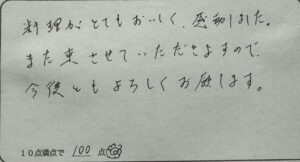 料理がとてもおいしく、感動しました。
また来させていただきますので、
今後ともよろしくお願します。
10点満点で 100 点